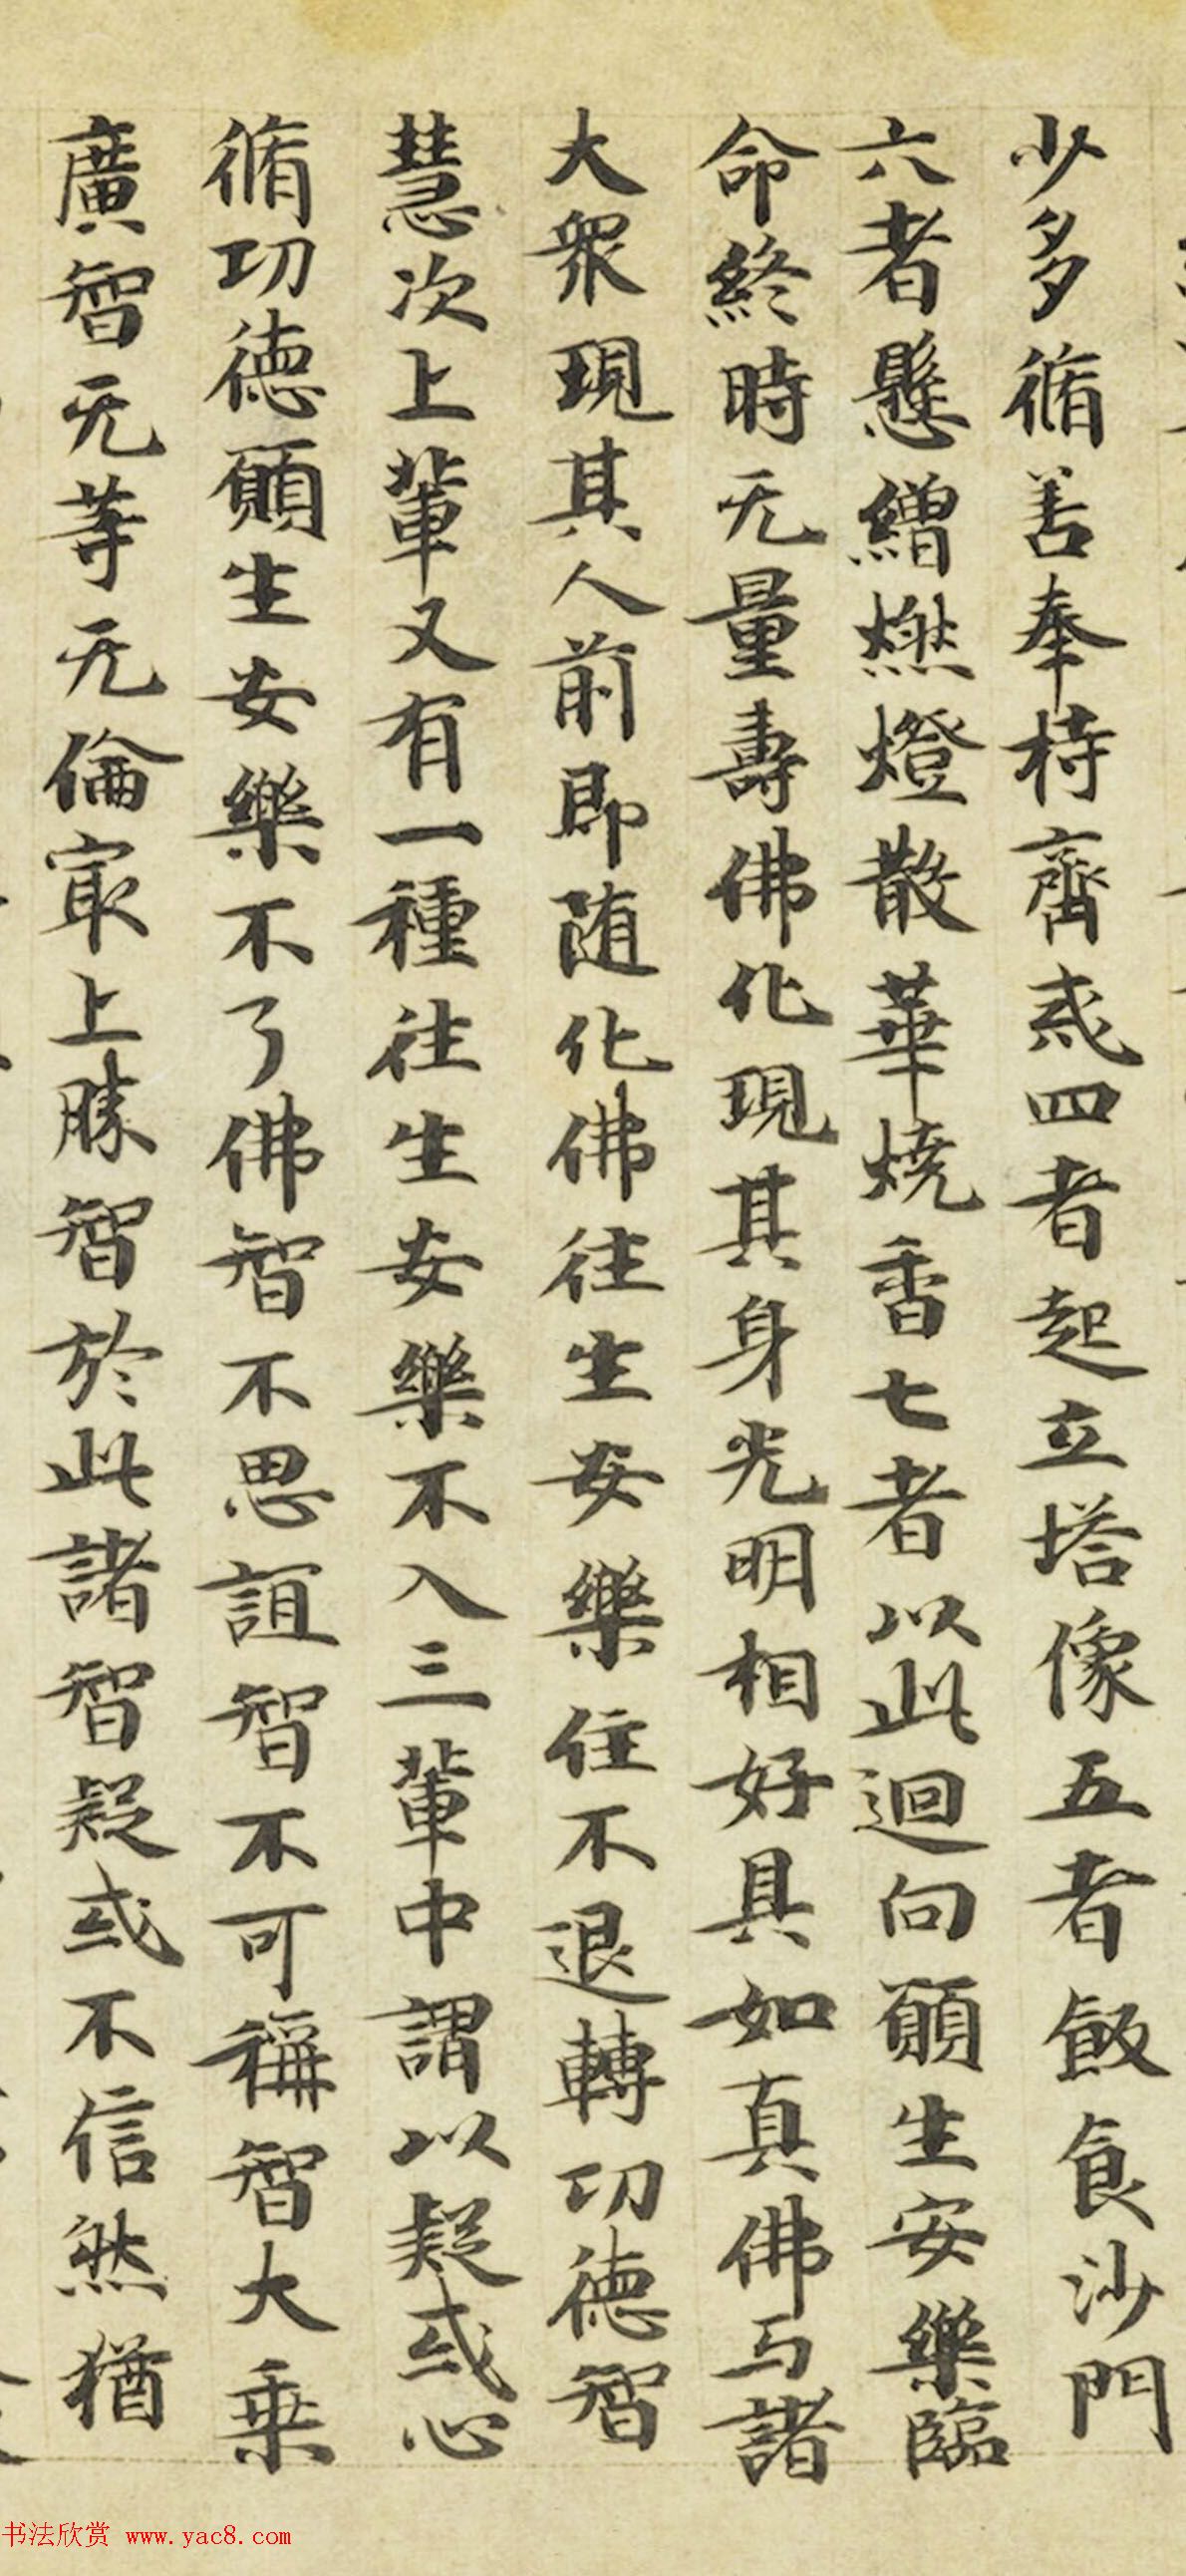 少多脩善奉持齊戒四者起立塔像五者飯食沙門
六者懸繒燃燈散華燒香七者以此迴向願生安樂臨
命終時无量壽佛化現其身光明相好具如真佛与諸
大衆現其人前即随化佛往生安樂住不退轉功德智
慧次上輩又有一種往生安樂不入三輩中謂以疑或心
脩功德願生安樂不了佛智不思誼智不可稱智大乗
廣智无等无倫寂上勝智於此諸智疑或不信然猶
书法欣赏 www.yac8.com